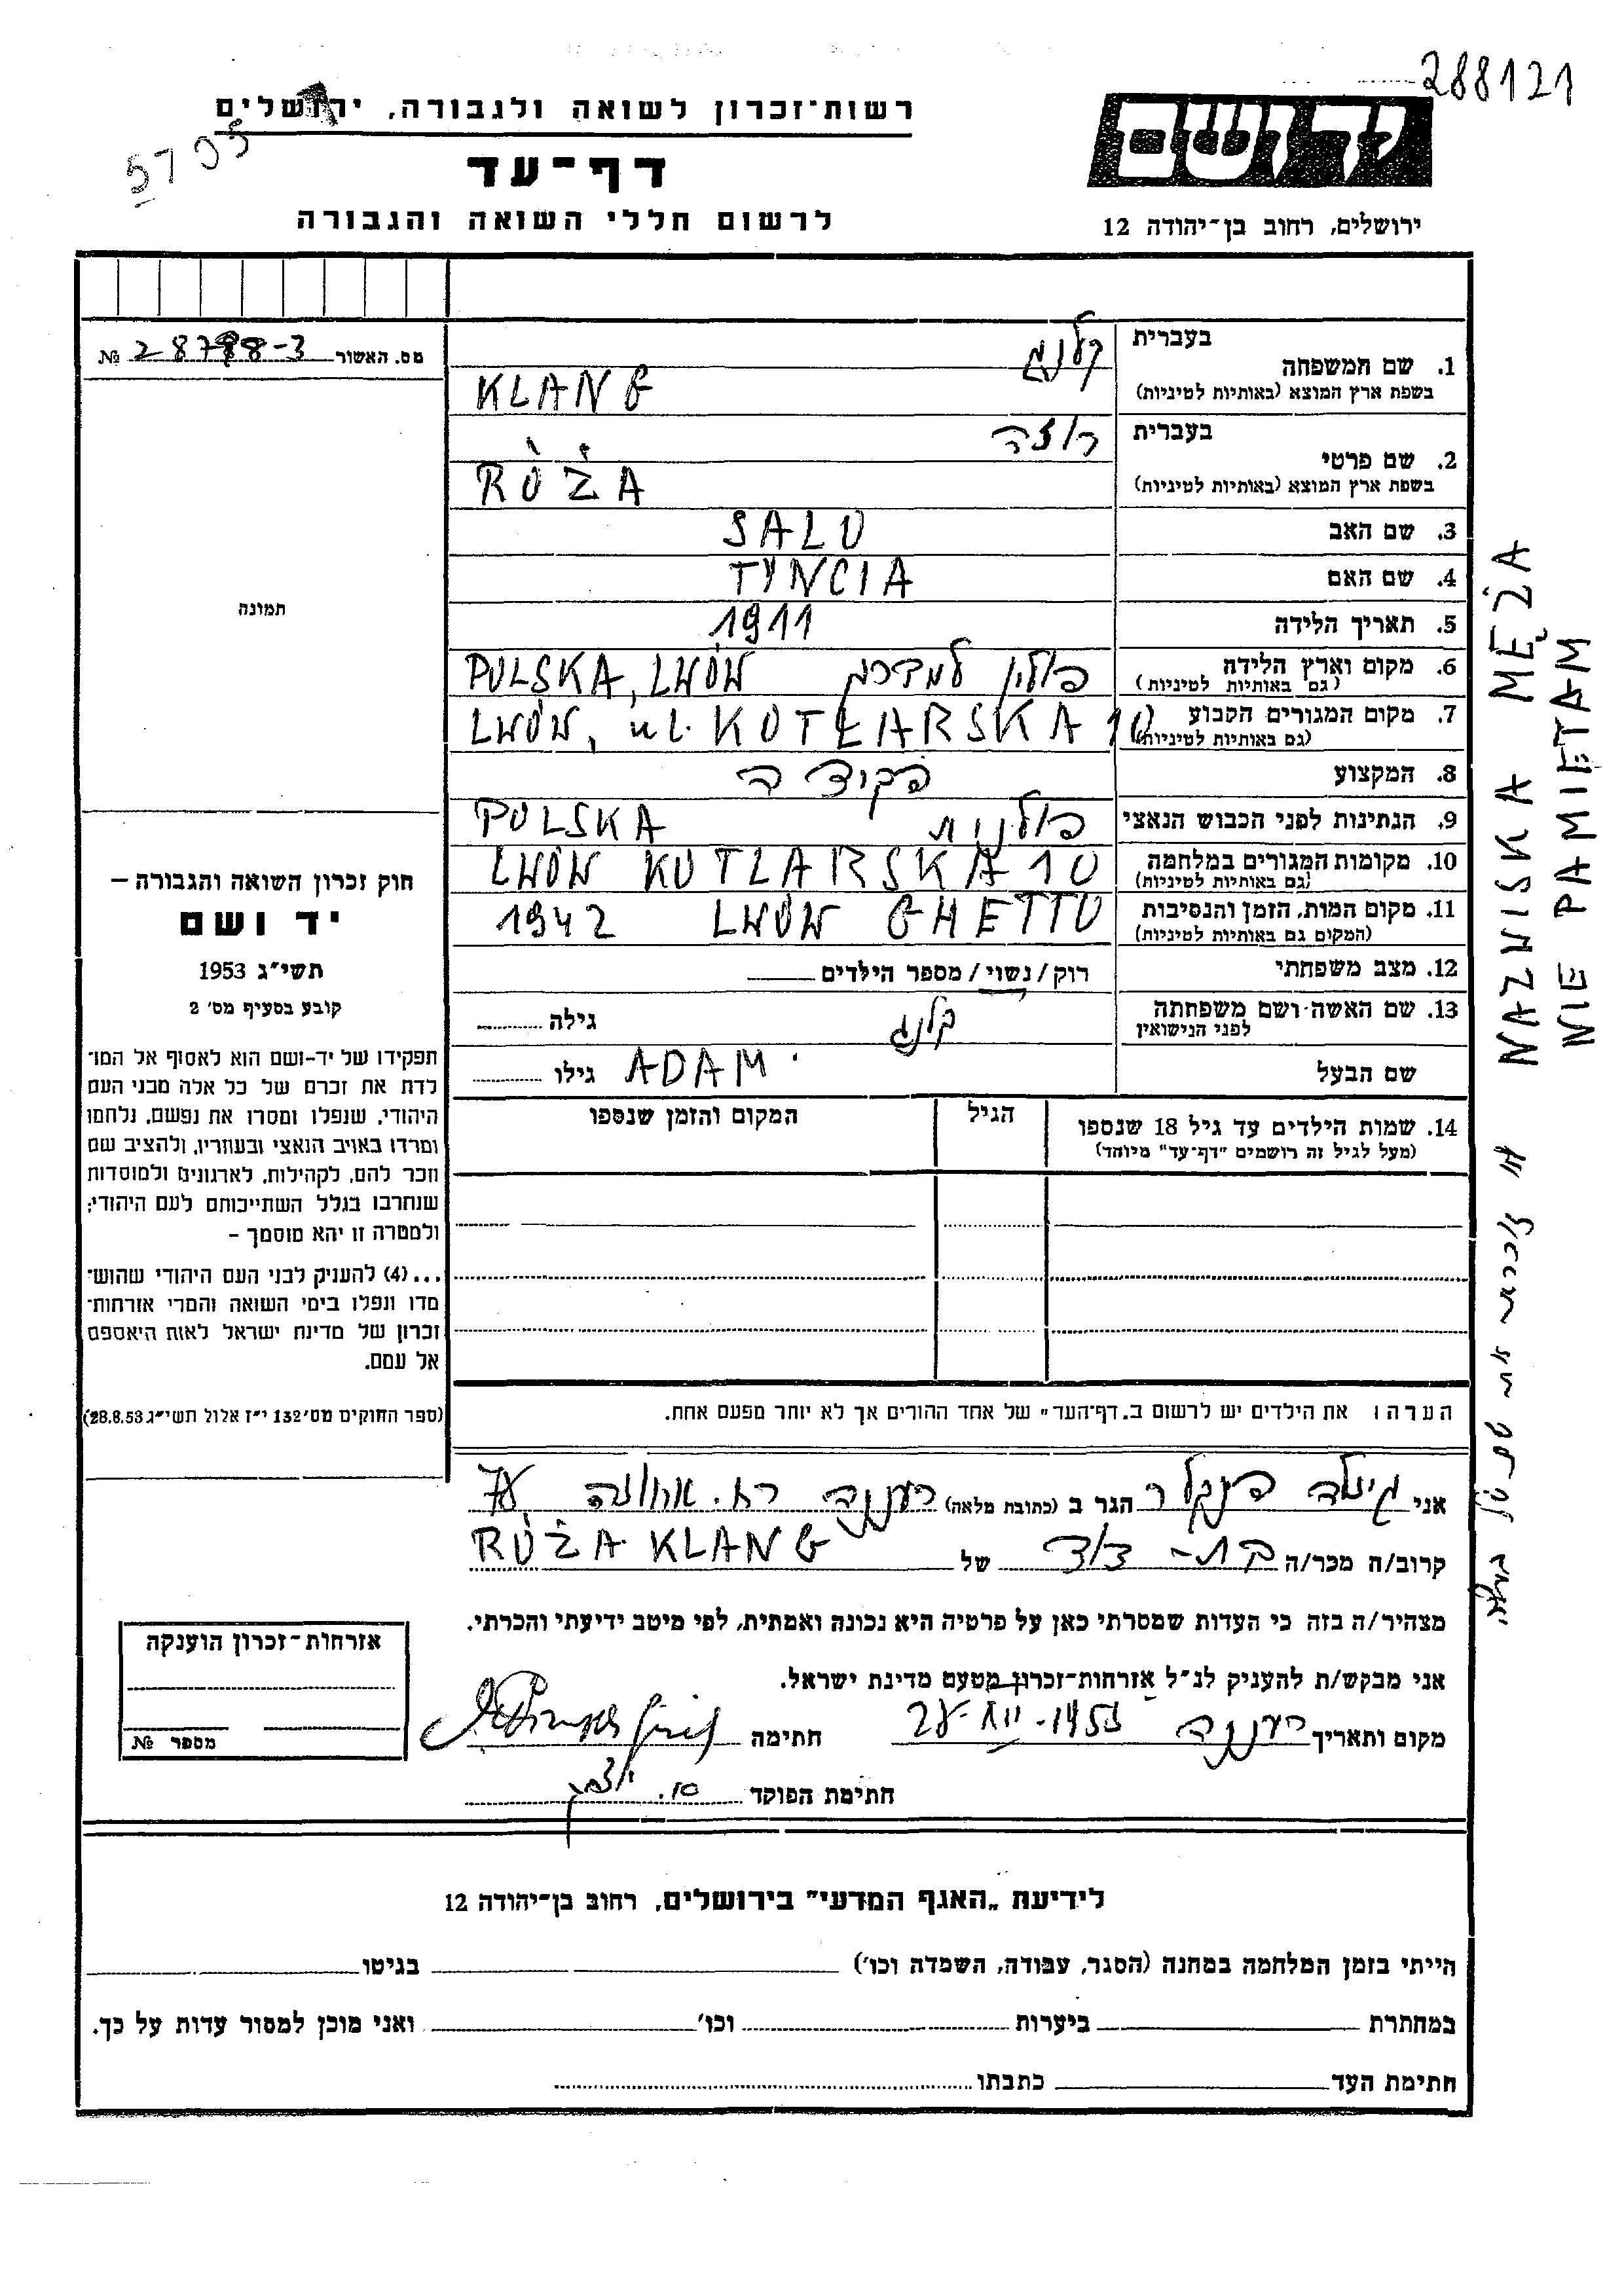 288121
רשות-זכרון לשואה ולגבורה, ירושלים
5705
דף-עד
לרשום חללי השואה והגבורה
יד ושם
ירושלים, רחוב בן-יהודה 12
מס. האשור 28788-3 №
תמונה
חוק זכרון השואה והגבורה —
יד ושם
תשי״ג 1953
קובע בסעיף מס׳ 2
תפקידו של יד-ושם הוא לאסוף אל המו־
לדת את זכרם של כל אלה מבני העם
היהודי, שנפלו ומסרו את נפשם, נלחמו
ומרדו באויב הנאצי ובעוזריו, ולהציב שם
וזכר להם, לקהילות, לארגונים ולמוסדות
שנחרבו בגלל השתייכותם לעם היהודי;
ולמטרה זו יהא מוסמך —
...(4) להעניק לבני העם היהודי שהוש־
מדו ונפלו בימי השואה והמרי אזרחות־
זכרון של מדינת ישראל לאות היאספם
אל עמם.
(ספר החוקים מס׳ 132 י״ז אלול תשי״ג 28.8.53)
1. שם המשפחה בעברית קלנג
בשפת ארץ המוצא (באותיות לטיניות) KLANG
2. שם פרטי בעברית רוזה
בשפת ארץ המוצא (באותיות לטיניות) RÓŻA
3. שם האב SALO
4. שם האם TYNCIA
5. תאריך הלידה 1911
6. מקום וארץ הלידה (גם באותיות לטיניות) פולין למברג POLSKA, LWÓW
7. מקום המגורים הקבוע (גם באותיות לטיניות) LWÓW, ul. KOTŁARSKA 10
8. המקצוע פקידה
9. הנתינות לפני הכבוש הנאצי פולנית POLSKA
10. מקומות המגורים במלחמה (גם באותיות לטיניות) LWÓW KOTLARSKA 10
11. מקום המות, הזמן והנסיבות (המקום גם באותיות לטיניות) 1942 LWÓW GHETTO
12. מצב משפחתי רוק/נשוי/ מספר הילדים
13. שם האשה ושם משפחתה לפני הנישואין קלנג גילה
שם הבעל ADAM גילו
14. שמות הילדים עד גיל 18 שנספו הגיל המקום והזמן שנספו
(מעל לגיל זה רושמים "דף-עד" מיוחד)
הערה: את הילדים יש לרשום ב„דף-העד״ של אחד ההורים אך לא יותר מפעם אחת.
אני גיזלה פינקלר הגר ב (כתובת מלאה) רעננה רח. אחוזה 78
קרוב/ה מכר/ה בת-דוד של RÓŻA KLANG
מצהיר/ה בזה כי העדות שמסרתי כאן על פרטיה היא נכונה ואמתית, לפי מיטב ידיעתי והכרתי.
אני מבקש/ת להעניק לנ״ל אזרחות-זכרון מטעם מדינת ישראל.
מקום ותאריך רעננה 28-XII-1955 חתימה
חתימת הפוקד
אזרחות-זכרון הוענקה
מספר №
NAZWISKA MĘŻA
NIE PAMIETAM
לא זוכרת את שם
לידיעת „האגף המדעי״ בירושלים, רחוב בן-יהודה 12
הייתי בזמן המלחמה במחנה (הסגר, עבודה, השמדה וכו׳) בגיטו
במחתרת ביערות וכו׳ ואני מוכן למסור עדות על כך.
חתימת העד כתבתו